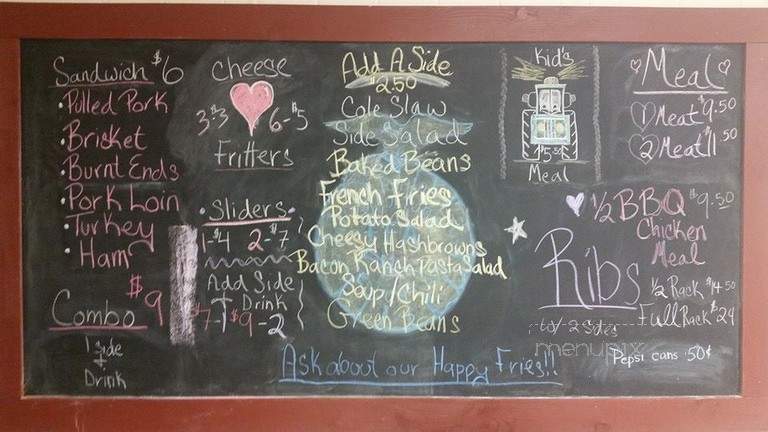 Sandwich $6
• Pulled Pork
• Brisket
• Burnt Ends
• Pork Loin
• Turkey
• Ham
Combo $9
1 side
+
Drink
Cheese
3-$3 6-$5
Fritters
• Sliders •
1-$4 2-$7
Add Side
+ Drink
$7-1 $9-2
Add A Side
$2.50
Cole Slaw
Side Salad
Baked Beans
French Fries
Potato Salad
Cheesy Hashbrowns
Bacon Ranch Pasta Salad
Soup/Chili
Green Beans
Ask about our Happy Fries!!
Kid's
$5.50
Meal
Meal
1 Meat $9.50
2 Meat $11.50
1/2 BBQ $9.50
Chicken
Meal
Ribs
1/2 Rack $14.50
Full Rack $24
w/ 2 Sides
menupix
Pepsi cans .50¢